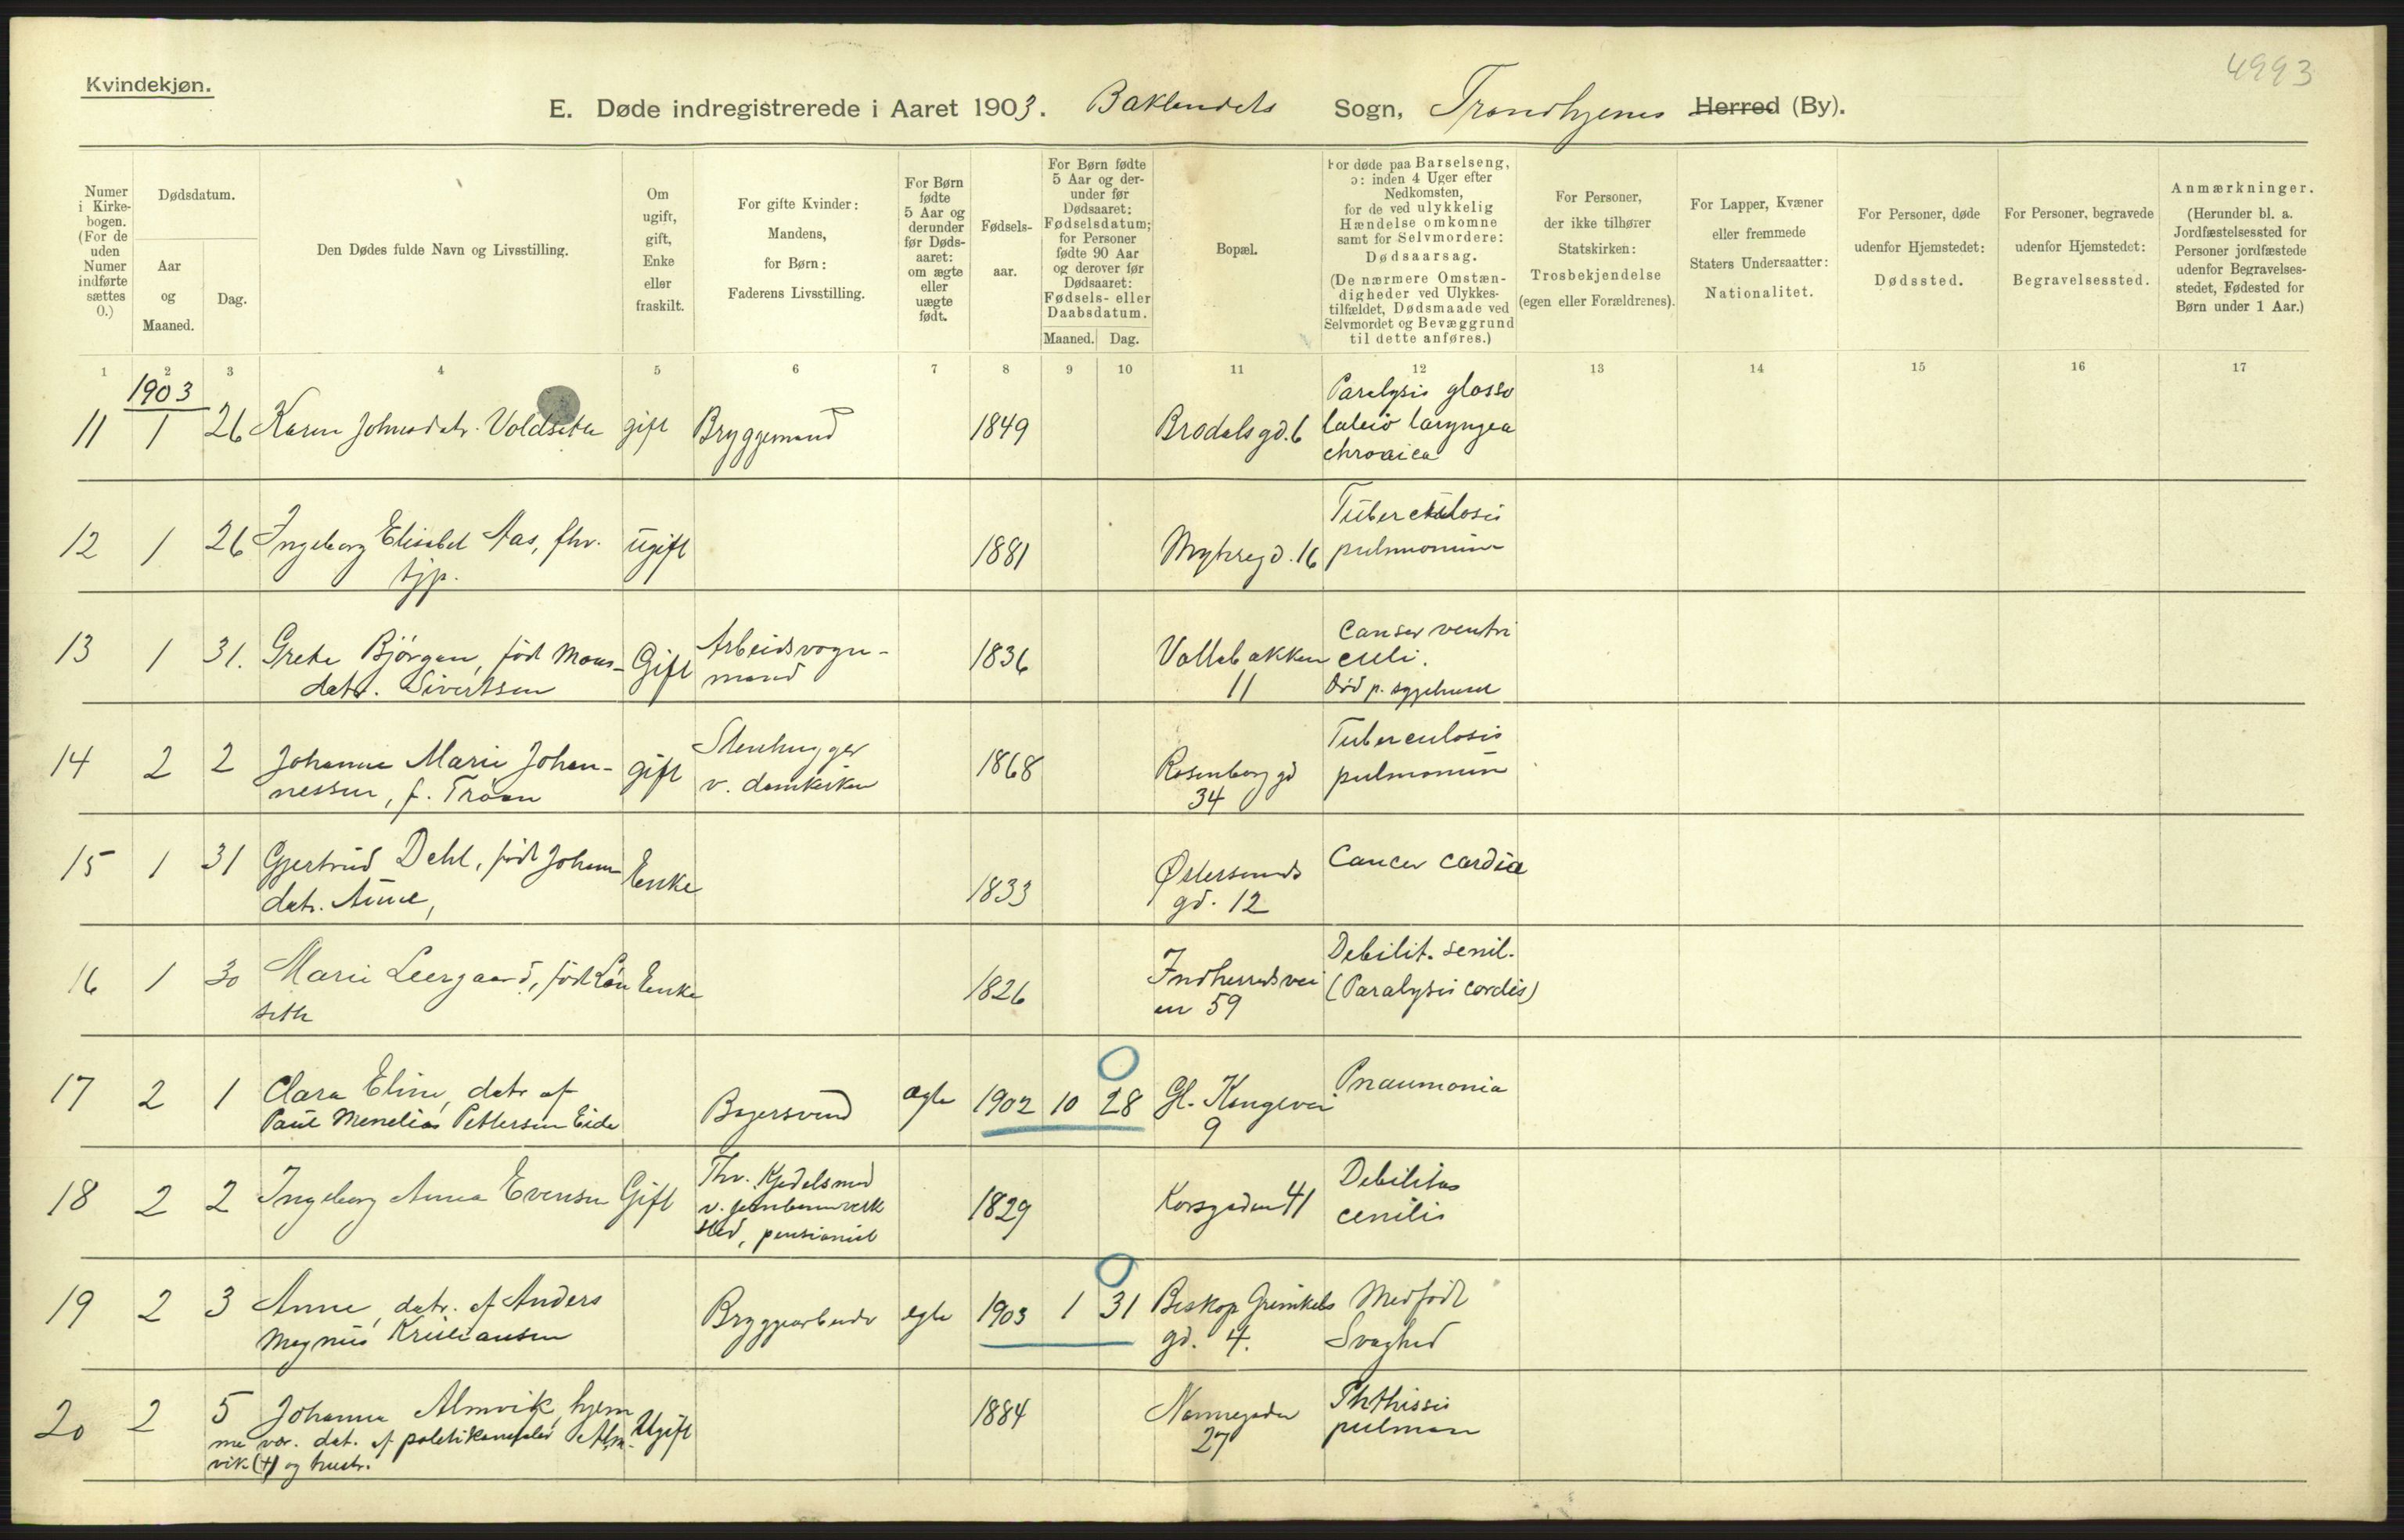 4993
Kvindekjøn.
E. Døde indregistrerede i Aaret 1903. Baklandets Sogn, Trondhjems Herred (By).
Numer i Kirkebogen. (For de uden Numer indførte sættes 0.)
Dødsdatum.
Aar og Maaned.
Dag.
Den Dødes fulde Navn og Livsstilling.
Om ugift, gift, Enke eller fraskilt.
For gifte Kvinder: Mandens, for Børn: Faderens Livsstilling.
For Børn fødte 5 Aar og derunder før Dødsaaret: om ægte eller uægte født.
Fødselsaar.
For Børn fødte 5 Aar og derunder før Dødsaaret: Fødselsdatum; for Personer fødte 90 Aar og derover før Dødsaaret: Fødsels- eller Daabsdatum.
Maaned. Dag.
Bopæl.
For døde paa Barselseng, ɔ: inden 4 Uger efter Nedkomsten, for de ved ulykkelig Hændelse omkomne samt for Selvmordere: Dødsaarsag. (De nærmere Omstændigheder ved Ulykkestilfældet, Dødsmaade ved Selvmordet og Bevæggrund til dette anføres.)
For Personer, der ikke tilhører Statskirken: Trosbekjendelse (egen eller Forældrenes).
For Lapper, Kvæner eller fremmede Staters Undersaatter: Nationalitet.
For Personer, døde udenfor Hjemstedet: Dødssted.
For Personer, begravede udenfor Hjemstedet: Begravelsessted.
Anmærkninger. (Herunder bl. a. Jordfæstelsessted for Personer jordfæstede udenfor Begravelsesstedet, Fødested for Børn under 1 Aar.)
1 2 3 4 5 6 7 8 9 10 11 12 13 14 15 16 17
1903
11 1 26 Karen Johnsdatr. Voldseter gift Bryggemand 1849 Brodalsgd. 6 Paralysis glosso
labio laryngea
chronica
12 1 26 Ingeborg Elisabet Aas, fhv. ugift 1881 16 Tuberculosis
tjp. pulmonum
13 1 31. Grete Bjørgan, født Mons- Gift Arbeidsvogn- 1836 Vollabakken Canser ventri
datr. Sivertsen mand 11 culi.
Død p. sygehuset
14 2 2 Johanna Marie Johan- gift Stenhugger 1868 Rosenborg gd Tuberculosis
nessen, f. Trøan v. domkirken 34 pulmonum
15 1 31 Gjertrud Dehl, født Johan Enke 1833 Østersunds Cancer cardia
datr. Aune, gd. 12
16 1 30 Marie Leergaard, født Løn Enke 1826 Indherredsvei Debilit. senil.
seth en 59 (Paralysis cordis)
17 2 1 Clara Eline, datr af Bagersvend ægte 1902 10 28 Gl. Kongevei Pnaumonia
Paul Menelias Pettersen Eide 9
18 2 2 Ingeborg Anna Evensen Gift Fhv. Kjedelsmed 1829 Korsgaden 41 Debilitas
v. jernbaneverk cenilis
sted, pensionist
19 2 3 Anne, datr. af Anders Bryggearbeider egte 1903 1 31 Biskop Grimkels Medfødt
Magnus Kristiansen gd. 4. Svaghed
20 2 5 Johanna Almvik, hjem Ugift 1884 Nannegaden Phthissis
me vær. dat. af politikonstabel Alm- 27 pulmon
vik (+) og hustr.